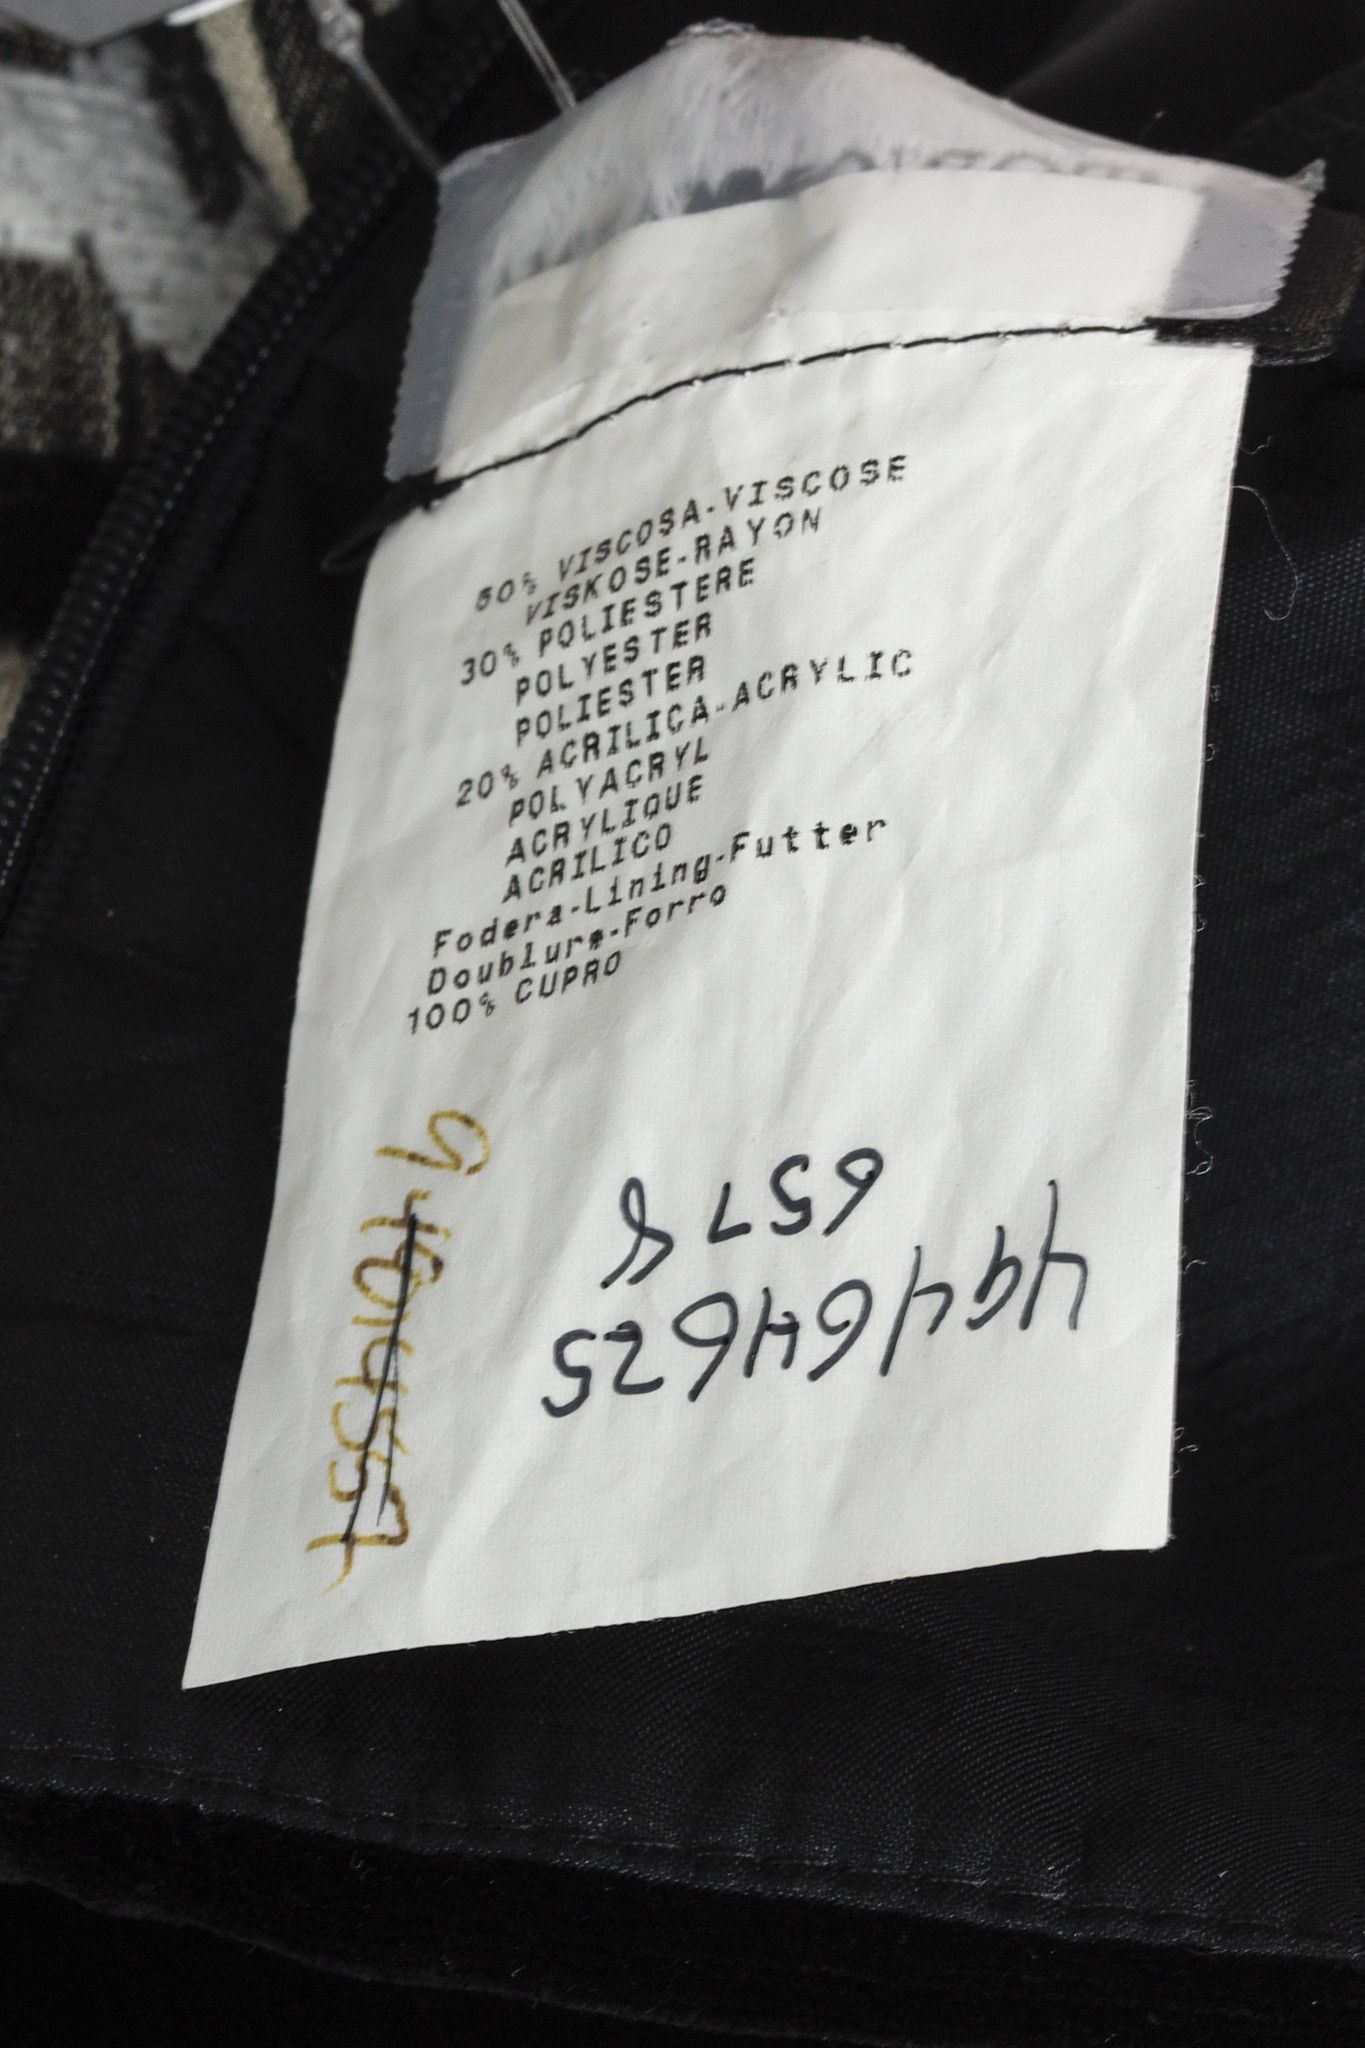 50% VISCOSA-VISCOSE
VISKOSE-RAYON
30% POLIESTERE
POLYESTER
POLIESTER
20% ACRILICA-ACRYLIC
POLYACRYL
ACRYLIQUE
ACRILICO
Fodera-Lining-Futter
Doublure-Forro
100% CUPRO
49464625
6578